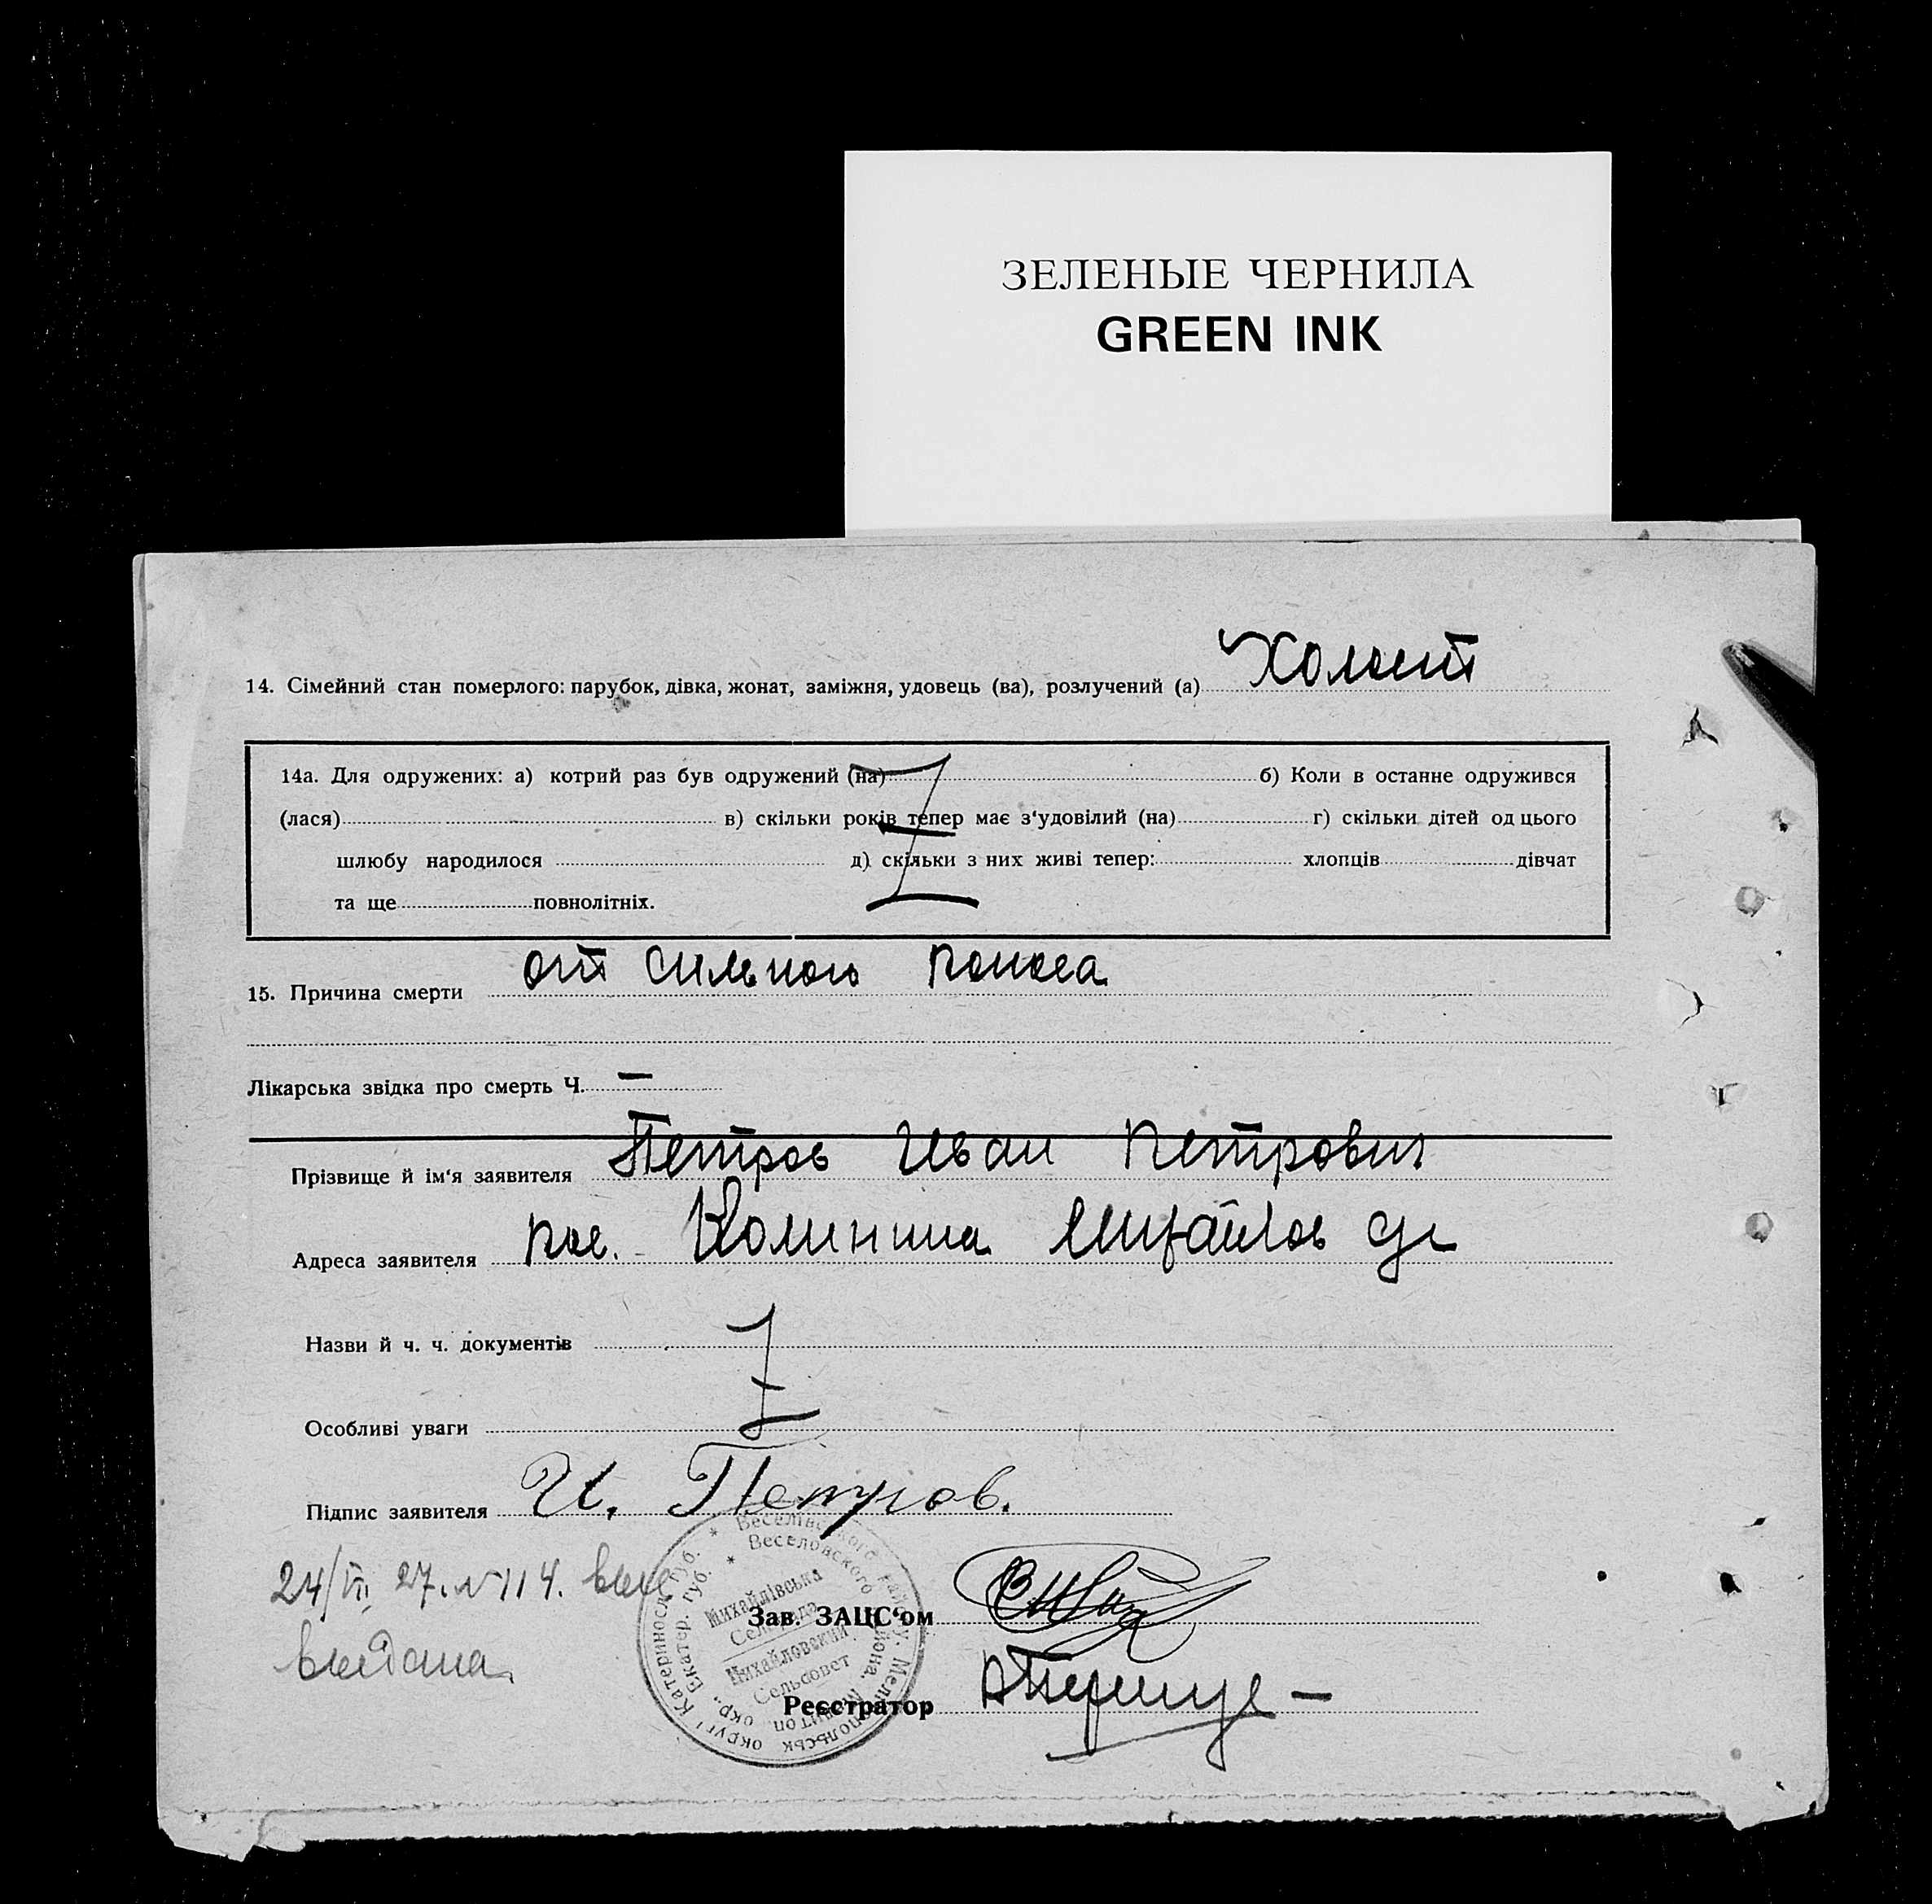 ЗЕЛЕНЫЕ ЧЕРНИЛА
GREEN INK
14. Сімейний стан померлого: парубок, дівка, жонат, заміжня, удовець (ва), розлучений (а) Холост
14а. Для одружених: а) котрий раз був одружений (на) б) Коли в останне одружився
(лася) в) скільки років тепер має з'удовілий (на) г) скільки дітей од цього
шлюбу народилося д) скільки з них живі тепер: хлопців дівчат
та ще повнолітніх.
15. Причина смерти от сильного поноса
Лікарська звідка про смерть Ч. —
Прізвище й ім'я заявителя Петров Иван Петрович
Адреса заявителя пос. Калинина Михайлов
Назви й ч. ч. документів
Особливі уваги
Підпис заявителя И. Петров.
24/VI 27. №114.
выдана
Зав. ЗАЦС'ом
Реєстратор
* Веселівського району, Мелітопольськ округі Катеринослу губ.
* Веселовского района, Мелитоп окр., Екатер. губ.
Михайлівська
Сельрада
Михайловский
Сельсовет